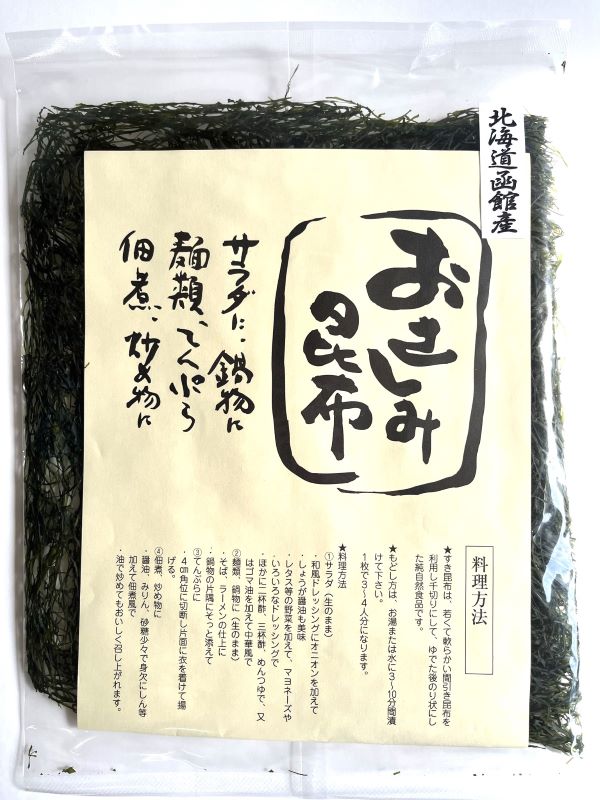 北海道函館産
おさしみ
昆布
サラダに、鍋物に
麺類、てんぷら
佃煮、炒め物に
料理方法
★すき昆布は、若くて軟らかい間引き昆布を
利用し千切りにして、ゆでた後のり状にし
た純自然食品です。
★もどし方は、お湯または水に3〜10分間漬
けて下さい。
1枚で3〜4人分になります。
★料理方法
①サラダ（生のまま）
・和風ドレッシングにオニオンを加えて
・しょうが醤油も美味
・レタス等の野菜を加えて、マヨネーズや
いろいろなドレッシングで
・ほかに二杯酢、三杯酢、めんつゆで、又
はゴマ油を加えて中華風で
②麺類、鍋物に（生のまま）
・そば、ラーメンの仕上に
・鍋物の片隅にそっと添えて
③てんぷらに
・4㎝角位に切断し片面に衣を着けて揚
げる。
④佃煮、炒め物に
・醤油、みりん、砂糖少々で身欠にしん等
加えて佃煮風で
・油で炒めてもおいしく召し上がれます。